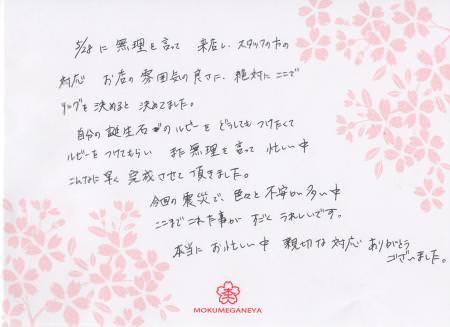 5/28 に 無理を言って 来店し、スタッフの方の
対応 お店の雰囲気の良さに、絶対にここで
リングを決めると 決めてました。
自分の誕生石のルビーを どうしてもつけたくて
ルビーをつけてもらい また無理を言って 忙しい中
こんなに早く 完成させて 頂きました。
今回の震災で、色々と不安が多い中
ここまでこれた事が すごく うれしいです。
本当に お忙しい中 親切な対応 ありがとう
ございました。
MOKUMEGANEYA